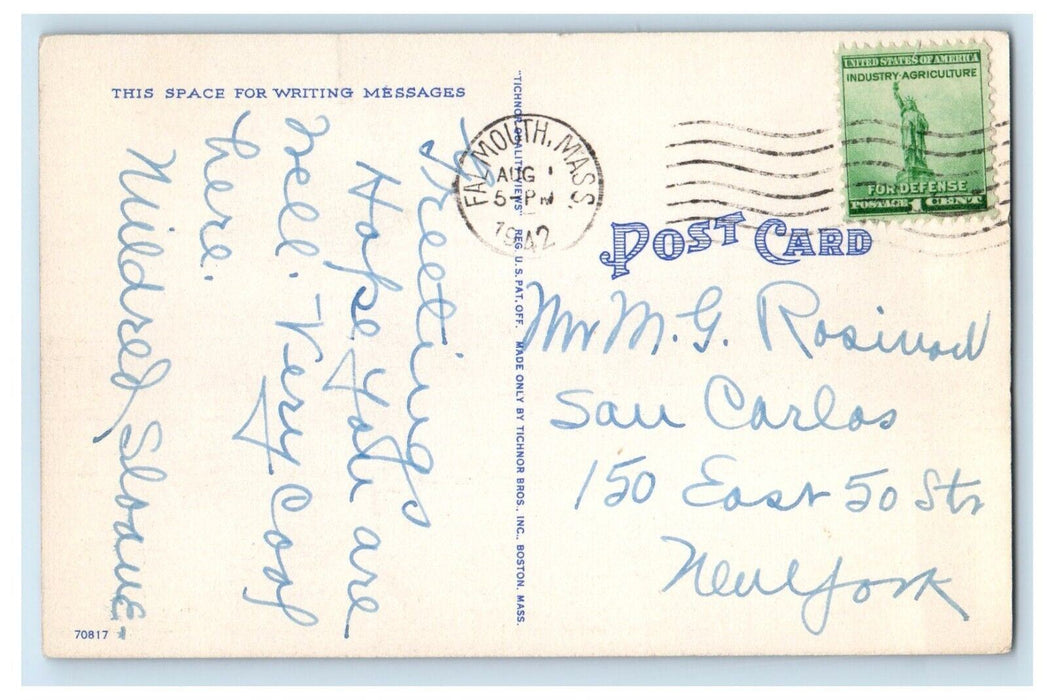 THIS SPACE FOR WRITING MESSAGES
Greetings
Hope you are
well. Very Cool
here.
Mildred Sloane -
70817
"TICHNOR QUALITY VIEWS" REG. U.S. PAT. OFF. MADE ONLY BY TICHNOR BROS., INC., BOSTON, MASS.
FALMOUTH, MASS.
AUG 1
5 - PM
1942
UNITED STATES OF AMERICA
INDUSTRY·AGRICULTURE
FOR DEFENSE
POSTAGE 1 CENT
POST CARD
Mr M. G.
San Carlos
150 East 50 Str
New York